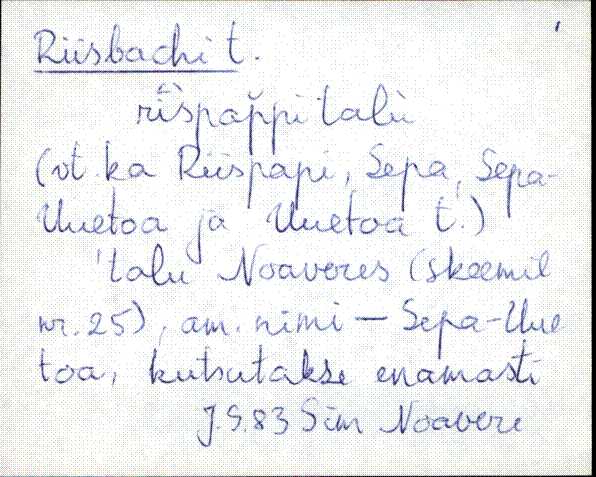 Riisbachi t.
rìispap̆pi talù
(vt. ka Riispapi, Sepa, Sepa-
Uuetoa ja Uuetoa t.)
talu Noaveres (skeemil
nr. 25), am. nimi — Sepa-Uue
toa, kutsutakse enamasti
J.S. 83 Sim Noavere